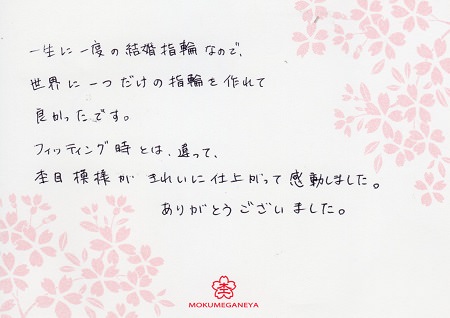 一生に一度の結婚指輪なので、
世界に一つだけの指輪を作れて
良かったです。
フィッティング時とは、違って、
杢目模様がきれいに仕上がって感動しました。
ありがとうございました。
杢
MOKUMEGANEYA